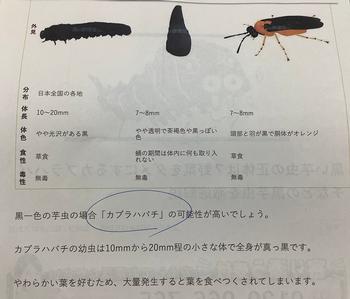 外見
分布 日本全国の各地
体長 10〜20mm 7〜8mm 7〜8mm
体色 やや光沢がある黒 やや透明で茶褐色や黒っぽい色 頭部と羽が黒で胴体がオレンジ
食性 草食 蛹の期間は体内に何も取り入れない 草食
毒性 無毒 無毒 無毒
黒一色の芋虫の場合「カブラハバチ」の可能性が高いでしょう。
カブラハバチの幼虫は10mmから20mm程の小さな体で全身が真っ黒です。
やわらかい葉を好むため、大量発生すると葉を食べつくされてしまいます。